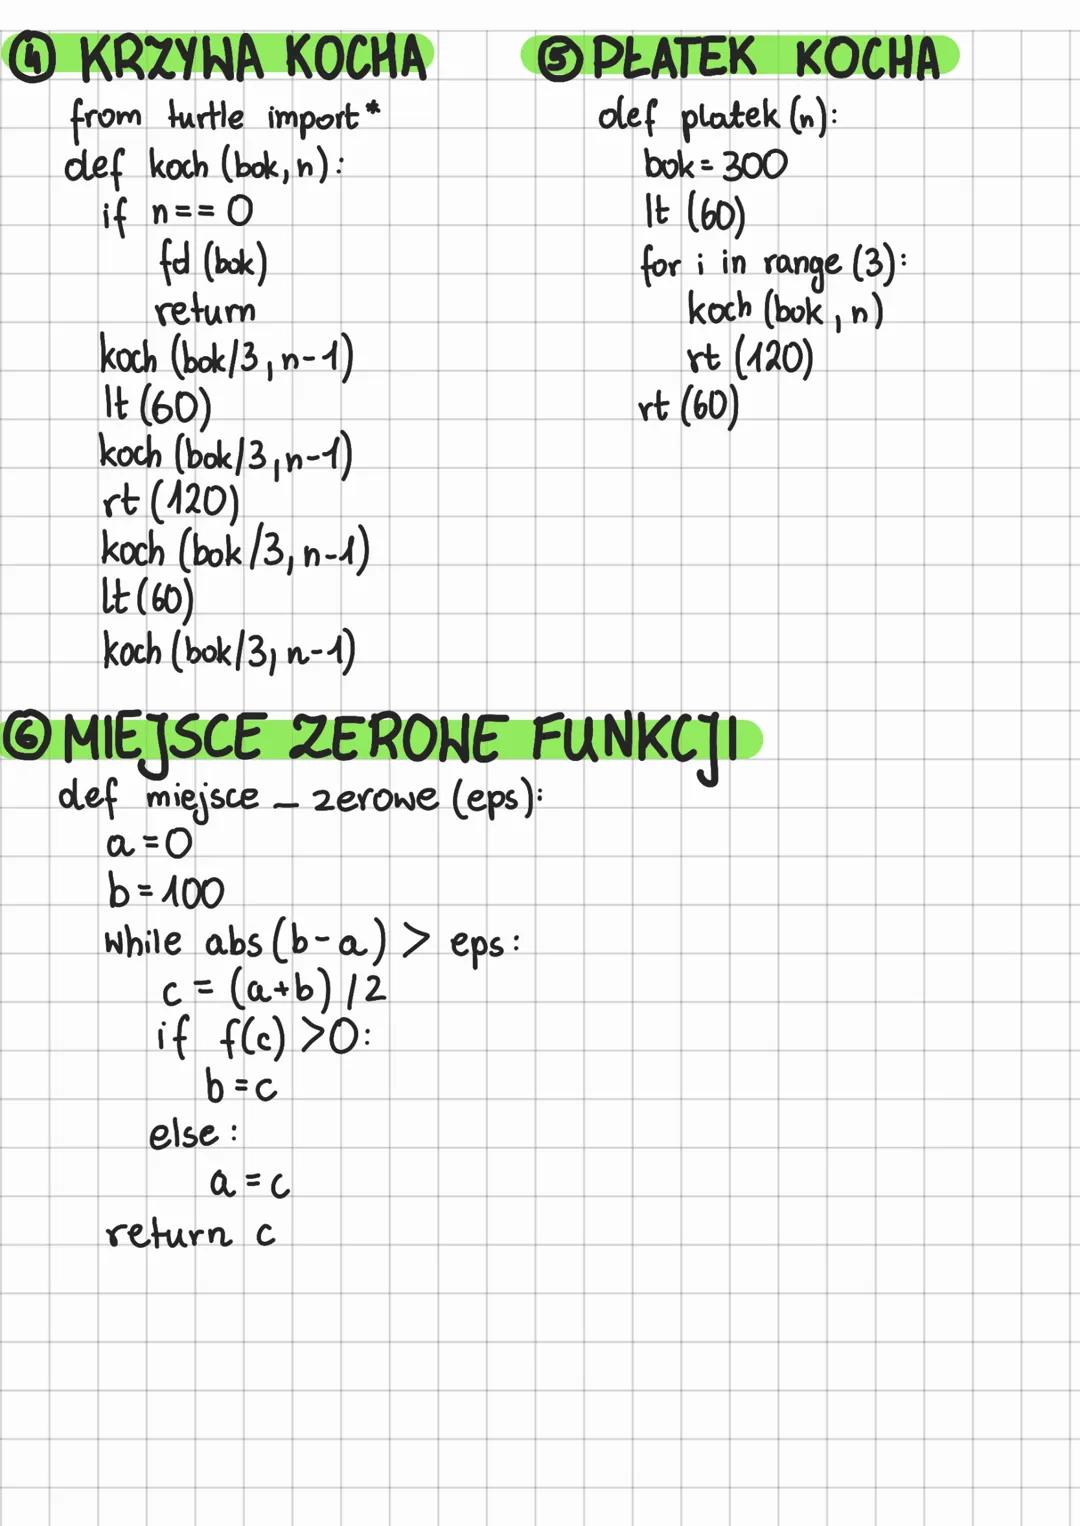 ④ KRZYWA KOCHA
from turtle import *
def koch (bok, n):
if n == 0
fd (bok)
return
koch (bok/3, n-1)
lt (60)
koch (bok/3, n-1)
rt (120)
koch (bok/3, n-1)
lt (60)
koch (bok/3, n-1)
⑤ PŁATEK KOCHA
def platek (n):
bok = 300
lt (60)
for i in range (3):
koch (bok, n)
rt (120)
rt (60)
⑥ MIEJSCE ZEROWE FUNKCJI
def miejsce _ zerowe (eps):
a = 0
b = 100
while abs (b-a) > eps:
c = (a+b) / 2
if f(c) > 0:
b = c
else:
a = c
return c